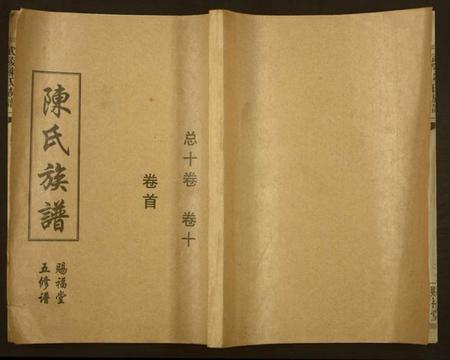 陳氏族譜
賜福堂
五修譜
总十卷 卷十
卷首